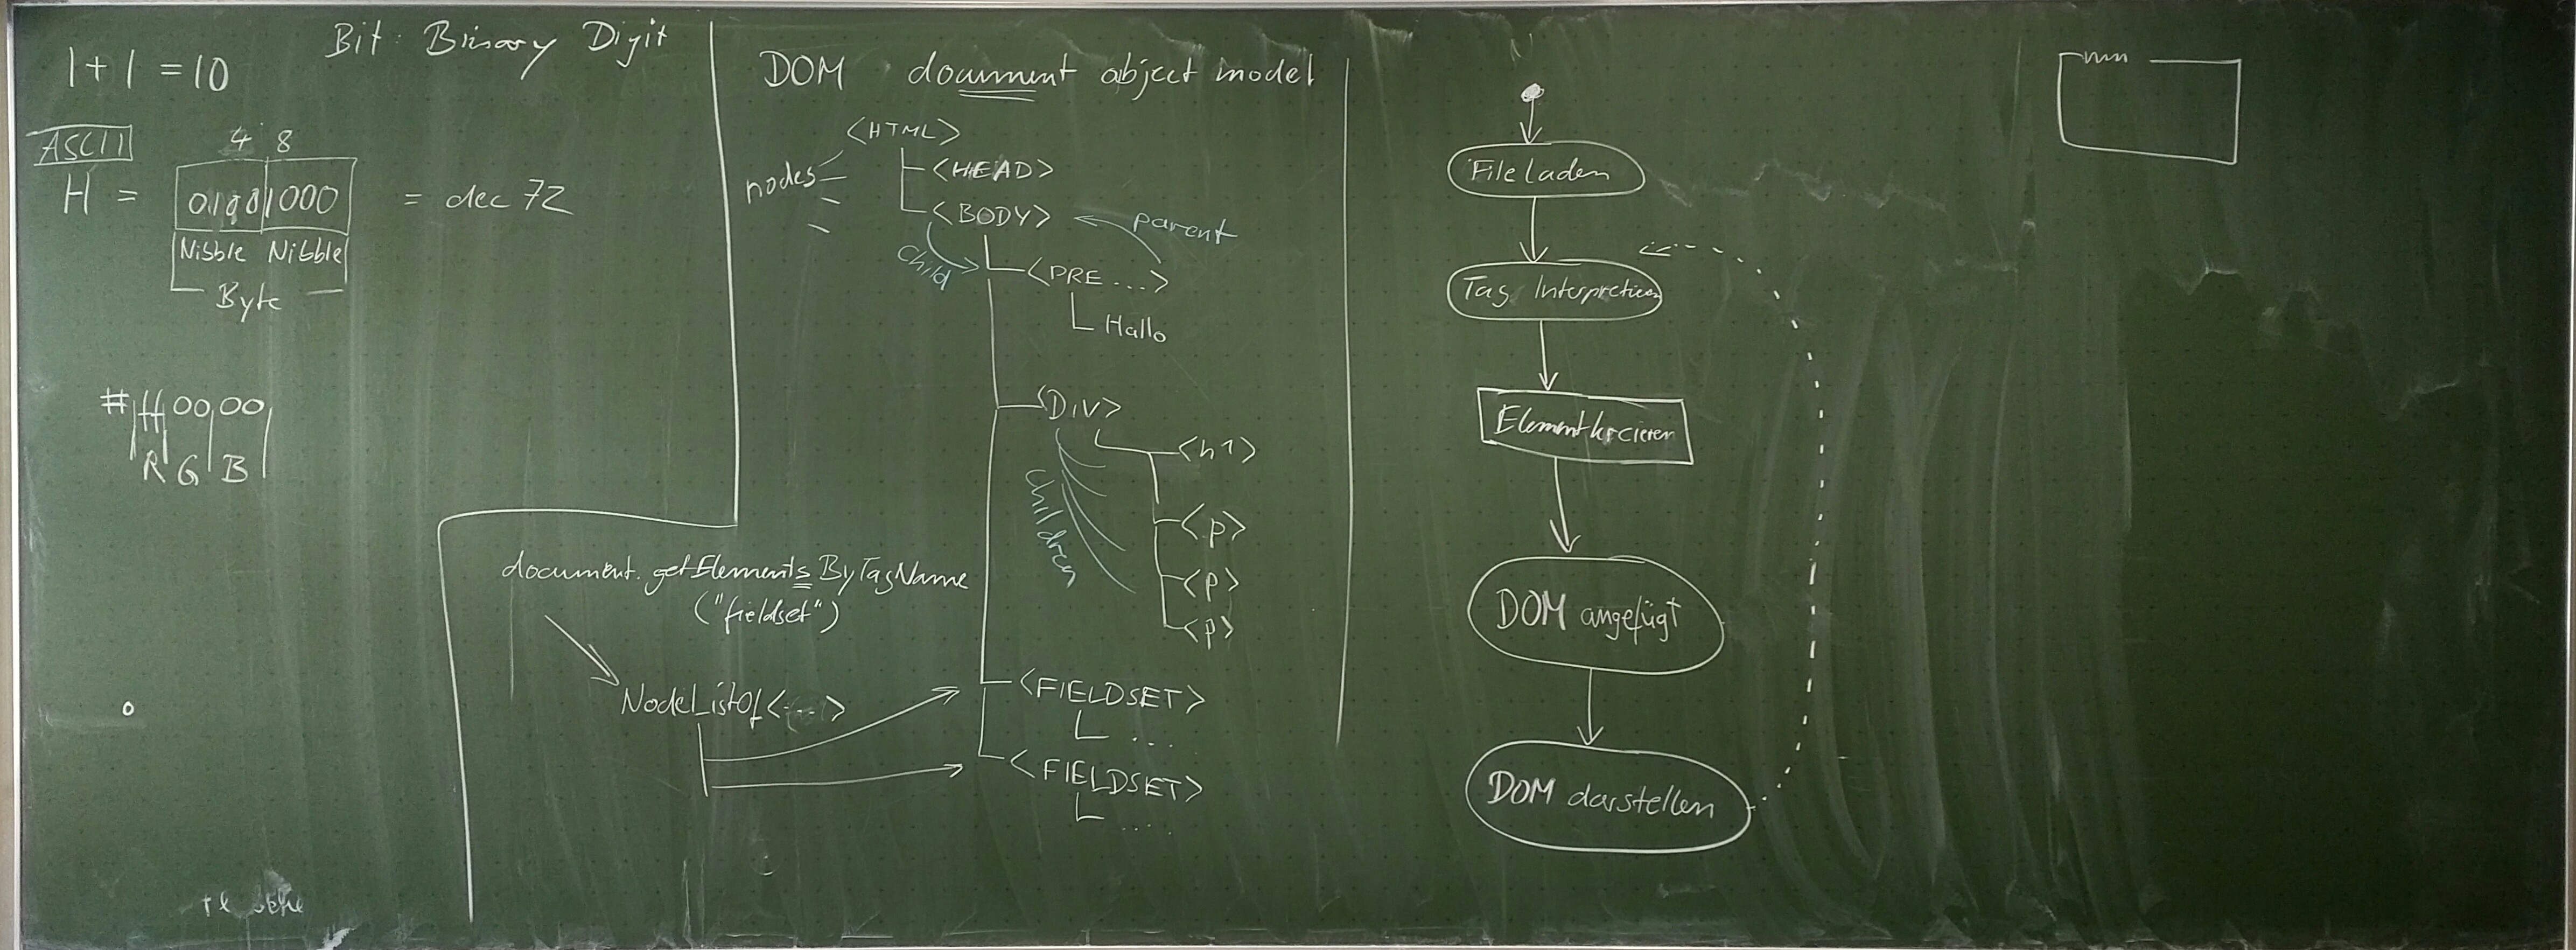 Bit: Binary Digit
1 + 1 = 10
ASCII
4 8
H = 0100 1000 = dec 72
Nibble Nibble
Byte
# ff 00 00
R G B
DOM document object model
<HTML>
nodes
<HEAD>
<BODY>
parent
child
<PRE ...>
Hallo
<DIV>
<h1>
children
<p>
<p>
<p>
document.getElementsByTagName
("fieldset")
NodeListOf<...>
<FIELDSET>
...
<FIELDSET>
....
File laden
Tag Interpretieren
Element kreieren
DOM angefügt
DOM darstellen